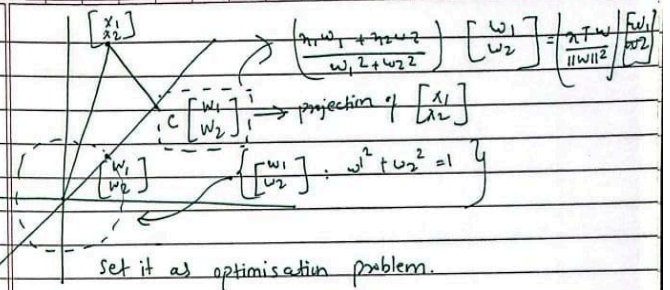 [x1 x2]
(x1w1 + x2w2 / w1² + w2²) [w1 w2] = (xᵀw / ||w||²) [w1 w2]
C [w1 w2] → projection of [x1 x2]
[w1 w2] { [w1 w2] : w1² + w2² = 1 }
Set it as optimisation problem.